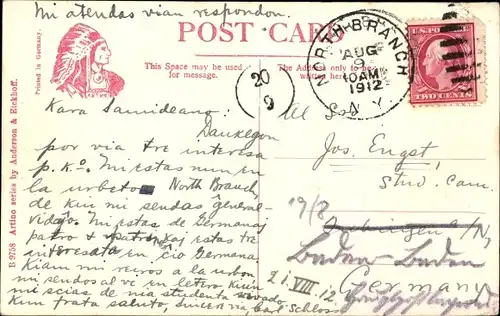 Mi atendas vian respondon.
POST CARD
This Space may be used
for message.
The Address only to be
Printed in Germany.
B 9758 Artino series by Anderson & Rickhoff.
NORTH BRANCH
AUG
9
10 AM
1912
N.Y.
U.S. POSTAGE
TWO CENTS
20
9
Kara Samideano:
Dankegon
por via tre interesa
p.k. Mi estas nun en
la urbeto North Branch,
de kiu mi sendas
Mi estas de Germanaj
patro & patrino, kaj estas tre
interesata en cio Germana
Kiam mi reiros a la urbon
mi sendos al vi en letero kiun
mi scias de mia studenta
Kun frata saluto, sincera via Carl Schloss
Al
Jos. Engst
Stud. Cam.
19/8
Tübingen a/N,
Baden-Baden
Germany
21.VIII.12.